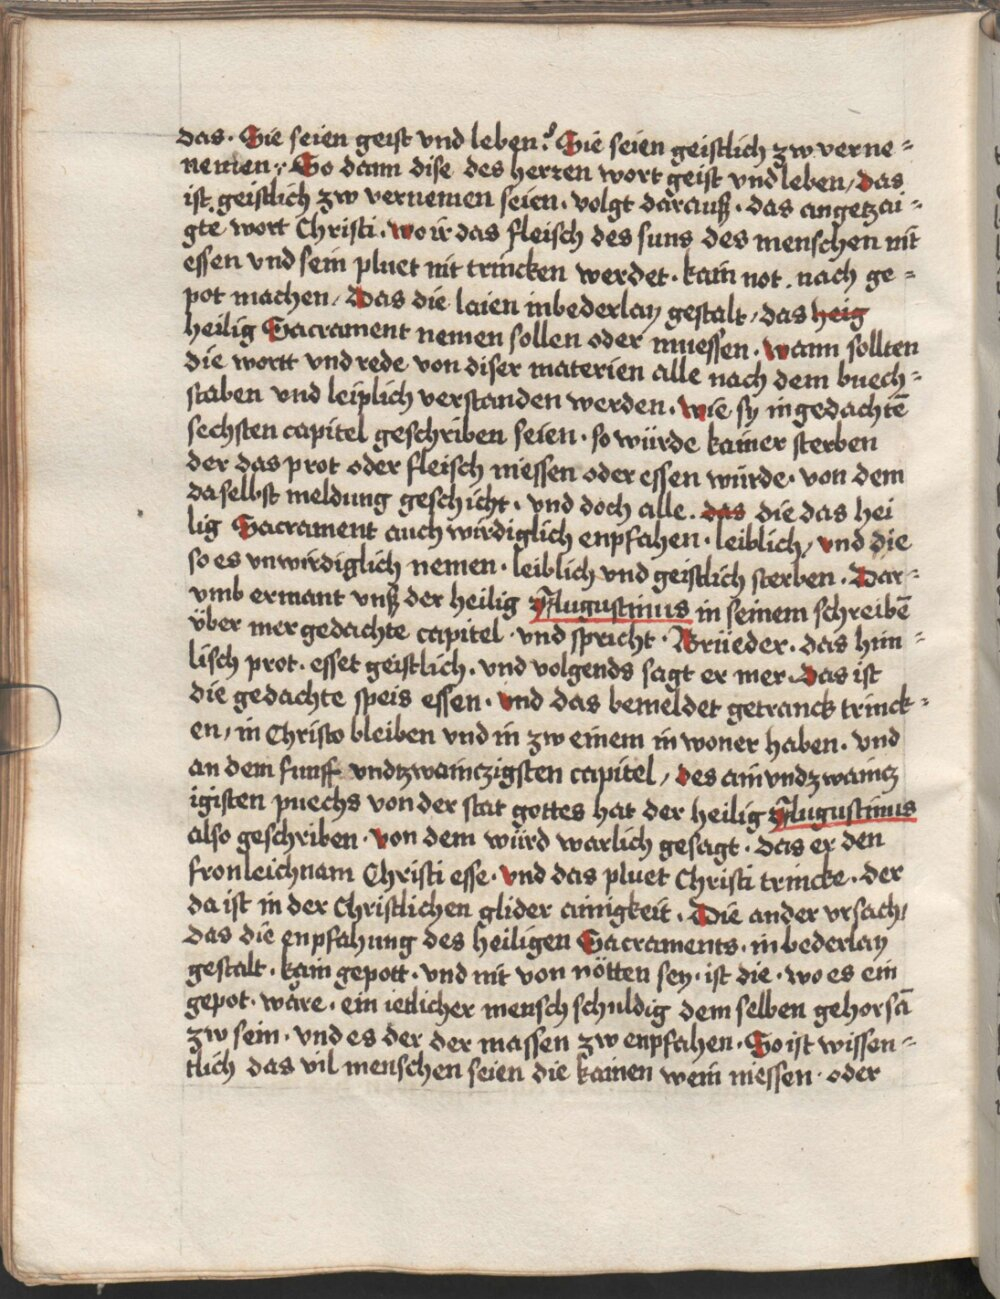 das. Sie seien geist vnd leben? Sie seien geistlich zw verne=
nemen. So dann dise des herzen wort geist vnd leben, das
ist geistlich zw vernemen seien. volgt darauß. das angetzai=
gte wort Christi. wo ir das fleisch des suns des menschen nit
essen vnd sein pluet nit trincken werdet. kain not. nach ge=
pot machen, Das die laien inbederlay gestalt, das heig
heilig Sacrament nemen sollen oder muessen. wann sollten
die wortt vnd rede von diser materien alle nach dem buech=
staben vnd leiplich verstanden werden. wie sy in gedachtē
sechsten capitel geschriben seien. so würde kainer sterben
der das prot oder fleisch niessen oder essen würde. von dem
daselbst meldung geschicht. vnd doch alle. das die das hei
lig Sacrament auch wirdiglich enpfahen. leiblich, vnd die
so es vnwirdiglich nemen. leiblich vnd geistlich sterben. Dar=
vmb ermant vnß der heilig Augustinus in seinem schreibē
über mer gedachte capitel. vnd spricht. Brüeder. das him=
lisch prot. esset geistlich. vnd volgends sagt er mer. Das ist
die gedachte speis essen. vnd das bemeldet getranck trinck=
en, in Christo bleiben vnd in zw einem in woner haben. vnd
an dem funff vndtzwainczigsten capitel, des ain vndzwaincz
igisten puechs von der stat gottes hat der heilig Augustinus
also geschriben. von dem würd warlich gesagt. das er den
fronleichnam Christi esse. vnd das pluet Christi trincke. der
da ist in der Christlichen glider ainigkeit. Die ander vrsach,
das die enpfahung des heiligen Sacraments. in bederlay
gestalt. kain gepott. vnd nit von nötten sey. ist die. wo es ein
gepot. wäre. ein ietlicher mensch schuldig dem selben gehorsā
zw sein. vnd es der der massen zw enpfahen. So ist wissen=
tlich das vil menschen seien die kainen wein niessen. oder